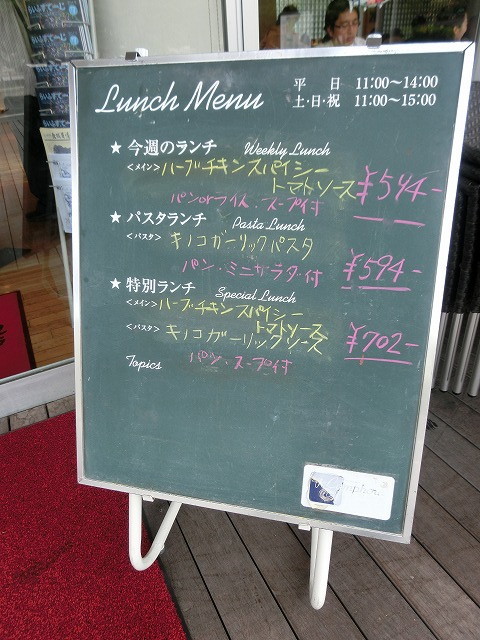 Lunch Menu
平 日 11:00〜14:00
土・日・祝 11:00〜15:00
★ 今週のランチ Weekly Lunch
<メイン> ハーブチキンスパイシー
トマトソース ¥594-
パンorライス・スープ付
★ パスタランチ Pasta Lunch
<パスタ> キノコガーリックパスタ
パン・ミニサラダ付 ¥594-
★ 特別ランチ Special Lunch
<メイン> ハーブチキンスパイシー
トマトソース
<パスタ> キノコガーリックソース ¥702-
パン・スープ付
Topics